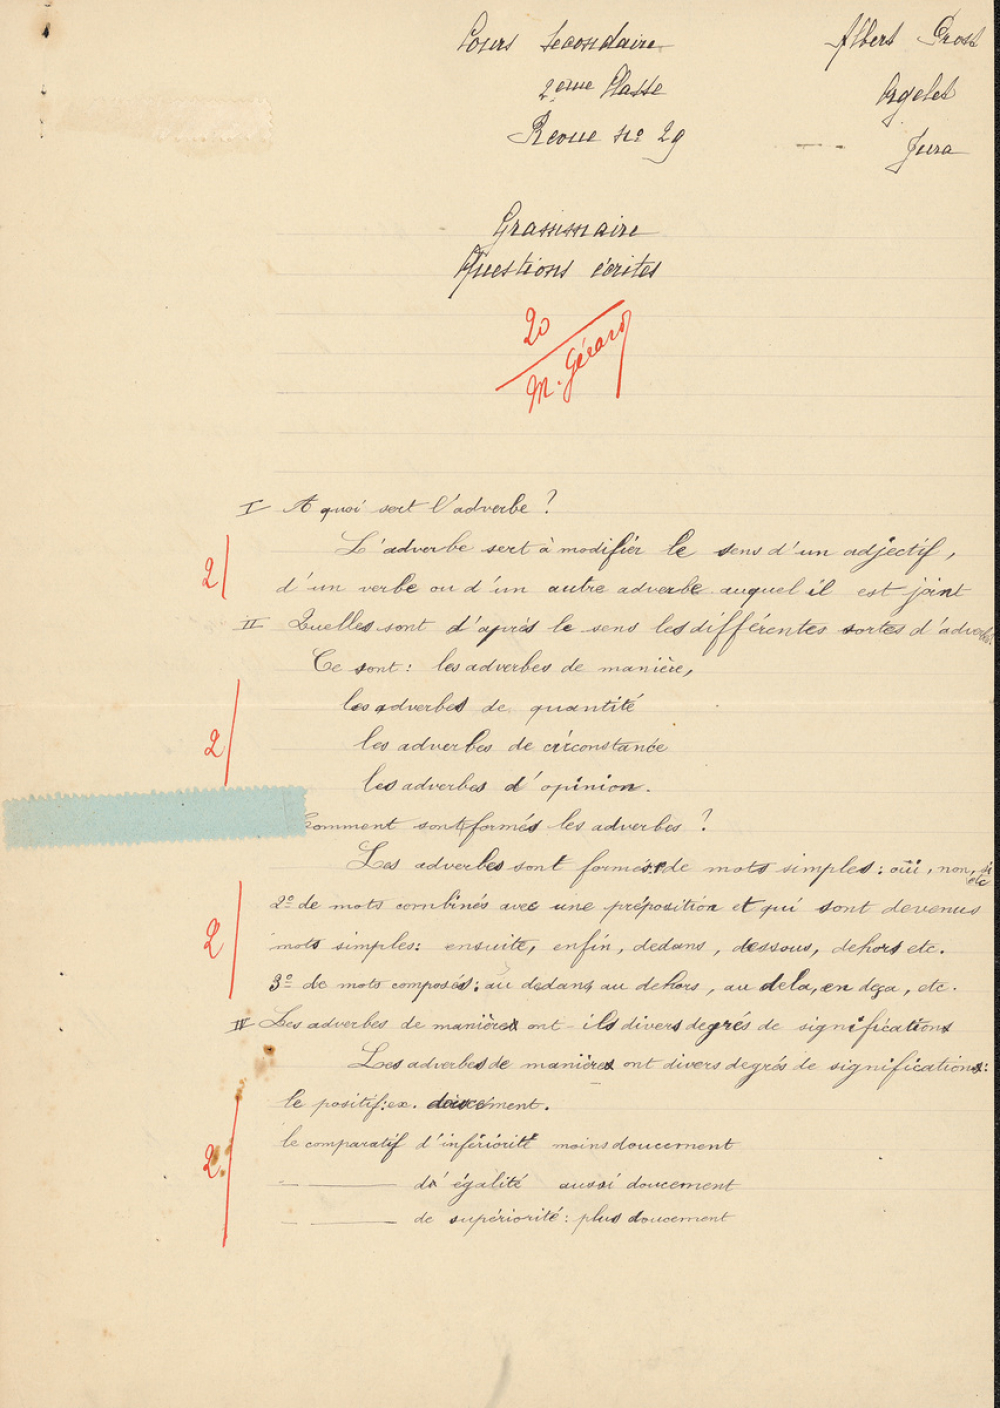 Cours Secondaire
Albert Prost
2ème Classe
Orgelet
Revue nº 29
Jura
Grammaire
Questions écrites
20
M. Gérard
I A quoi sert l'adverbe ?
L'adverbe sert à modifier le sens d'un adjectif,
2
d'un verbe ou d'un autre adverbe auquel il est joint
II Quelles sont d'après le sens les différentes sortes d'adverbes?
Ce sont : les adverbes de manière,
les adverbes de quantité
2
les adverbes de circonstance
les adverbes d'opinion.
Comment sont formés les adverbes ?
Les adverbes sont formés: de mots simples : oui, non, si
etc
2º de mots combinés avec une préposition et qui sont devenus
2
mots simples: ensuite, enfin, dedans, dessous, dehors etc.
3º de mots composés: au dedans, au dehors, au dela, en deça, etc.
IV Les adverbes de manières ont-ils divers degrés de significations
Les adverbes de manières ont divers degrés de significations:
le positif: ex. doucement.
le comparatif d'infériorité moins doucement
2
— d'égalité aussi doucement
— de supériorité : plus doucement